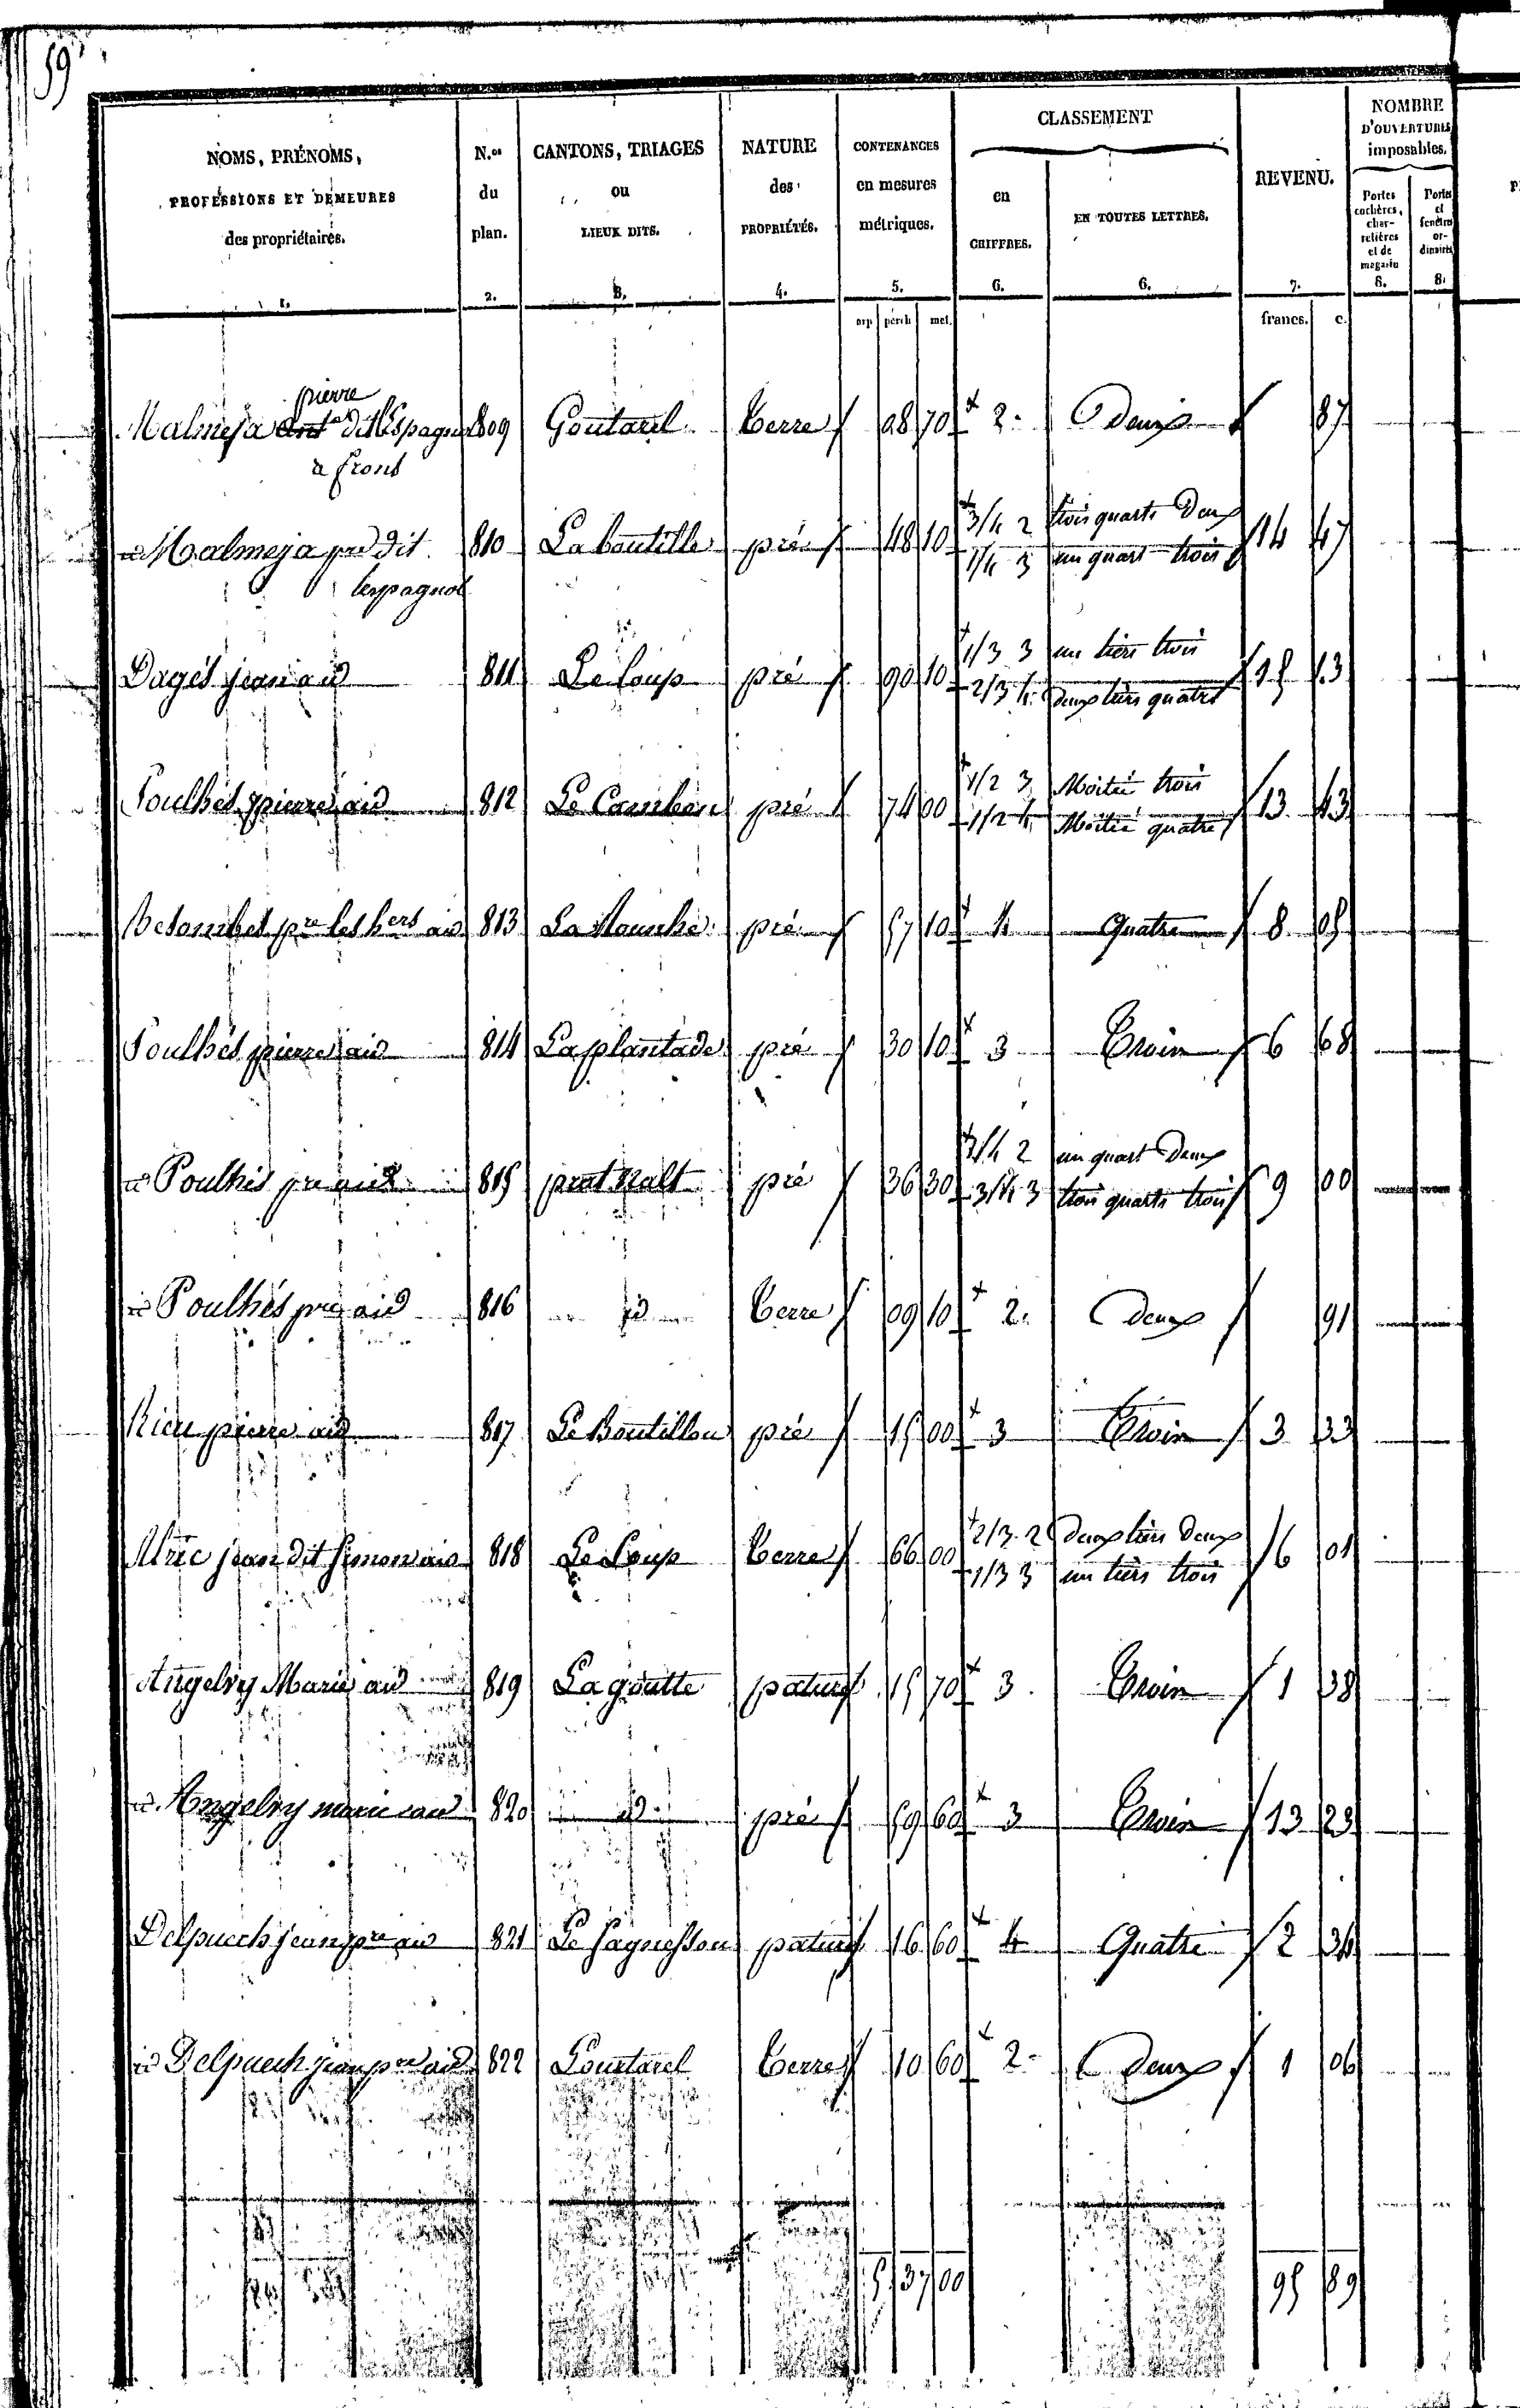 59
NOMS, PRÉNOMS, PROFESSIONS ET DEMEURES des propriétaires. 1.
N.os du plan. 2.
CANTONS, TRIAGES ou LIEUX DITS. 3.
NATURE des PROPRIÉTÉS. 4.
CONTENANCES en mesures métriques. 5.
CLASSEMENT
en CHIFFRES. 6.
EN TOUTES LETTRES. 6.
REVENU. 7.
NOMBRE D'OUVERTURES imposables.
Portes cochères, charretières et de magasin 8.
Portes et fenêtres ordinaires 8.
arp perch met. francs. c.
pierre
Malmeja ant dit l'Espagnol 809 Goutarel Terre 08 70 2 Deux 87
à front
id Malmeja pre dit 810 La boutille pré 48 10 3/4 2 trois quarts Deux 14 47
lespagnol 1/4 3 un quart trois
Dagés jean aid 811 Le Loup pré 90 10 1/3 3 un tiers trois 15 13
2/3 4 Deux tiers quatre
Poulhés pierre aid 812 Le Cambon pré 74 00 1/2 3 Moitié trois 13 43
1/2 4 Moitié quatre
pre les hers aid 813 pré 57 10 4 Quatre 8 05
Poulhés pierre aid 814 La plantade pré 30 10 3 Trois 6 68
id Poulhés pre aid 815 prat pré 36 30 1/4 2 un quart Deux 9 00
3/4 3 trois quarts trois
id Poulhés pre aid 816 id Terre 09 10 2 Deux 91
Rieu pierre aid 817 Le Boutillou pré 15 00 3 Trois 3 33
Alric jean dit Simon aid 818 Le Loup Terre 66 00 2/3 2 Deux tiers Deux 6 01
1/3 3 un tiers trois
Angelvy Marie aid 819 La goutte pature 15 70 3 Trois 1 38
id Angelvy marie aid 820 id pré 59 60 3 Trois 13 23
Delpuech jean pre aid 821 Le Sagnessou pature 16 60 4 Quatre 2 34
id Delpuech jean pre aid 822 Terre 10 60 2 Deux 1 06
5 37 00 95 89